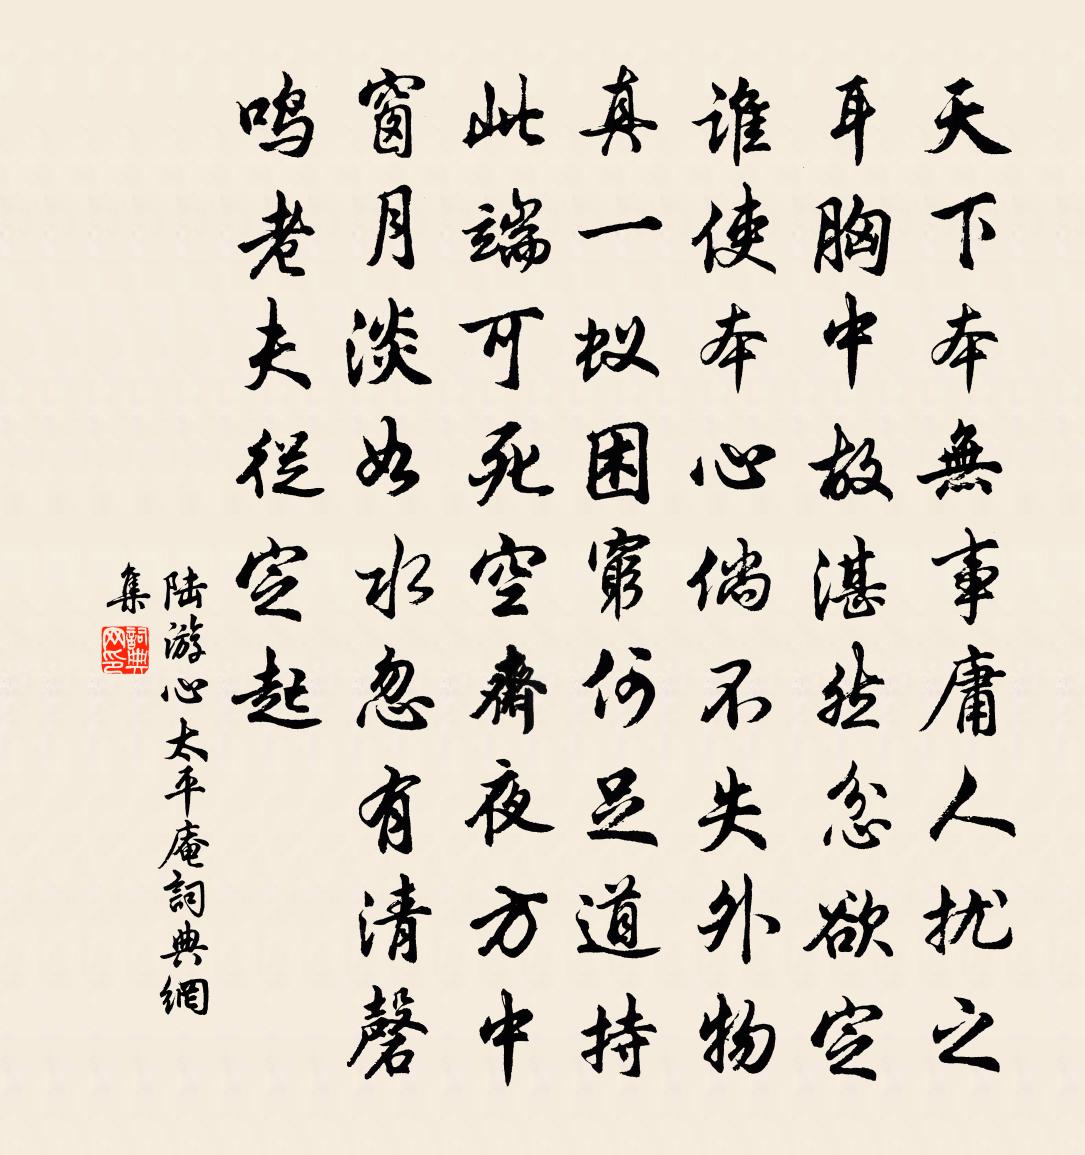 天下本無事庸人扰之
耳胸中故湛然忿欲定
谁使本心倘不失外物
真一蚁困窮何足道持
此端可死空齋夜方中
窗月淡如水忽有清磬
鸣老夫從定起
陆游心太平庵詞典網
集
詞典
网印